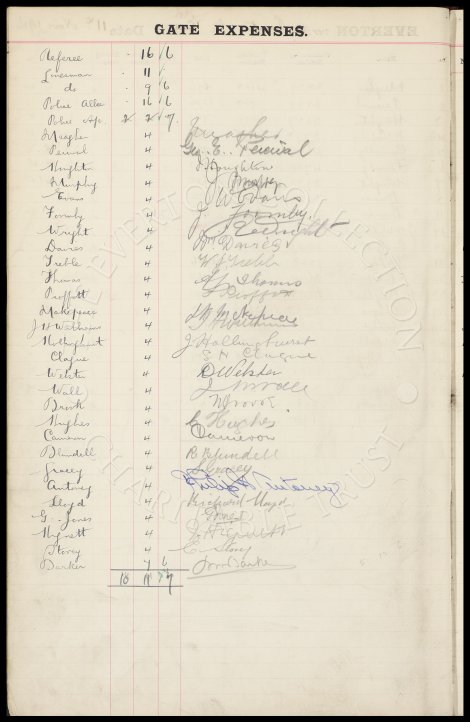 GATE EXPENSES.
Referee 16 6
Linesman 11
do 9 6
Police Allce 16 6
Police 2 2 7
Meagher 4 J Meagher
Percival 4 Geo. E. Percival
Houghton 4 J Houghton
Murphy 4 J Murphy
Evans 4 J W Evans
Formby 4 J Formby
Wright 4
Davies 4 Wm Davies
Treble 4 W J Treble
Thomas 4 A G Thomas
Proffitt 4 J Proffitt
Makepeace 4
J H Williams 4 J H Williams
Hollinghurst 4 J Hollinghurst
Clague 4 E H Clague
Webster 4 D Webster
Wall 4
Brook 4
Hughes 4 E Hughes
Cameron 4 Cameron
Blundell 4 R Blundell
Gracey 4 J Gracey
Antony 4
Lloyd 4 Richard Lloyd
G. Jones 4
Hignett 4 J Hignett
Storey 4 E Storey
Barker 7 6 Jno Barker
10 11 7
EVERTON COLLECTION
CHARITABLE TRUST